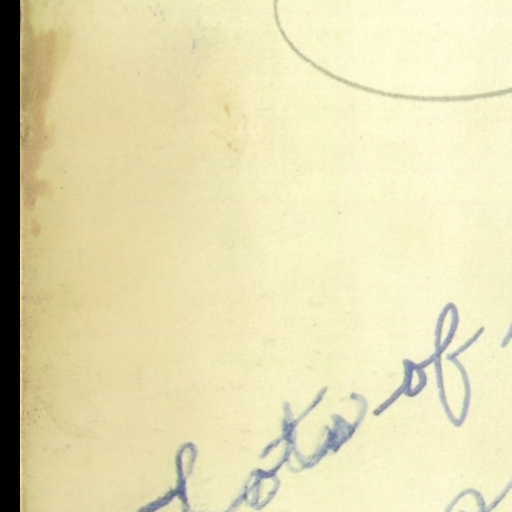 Lots of